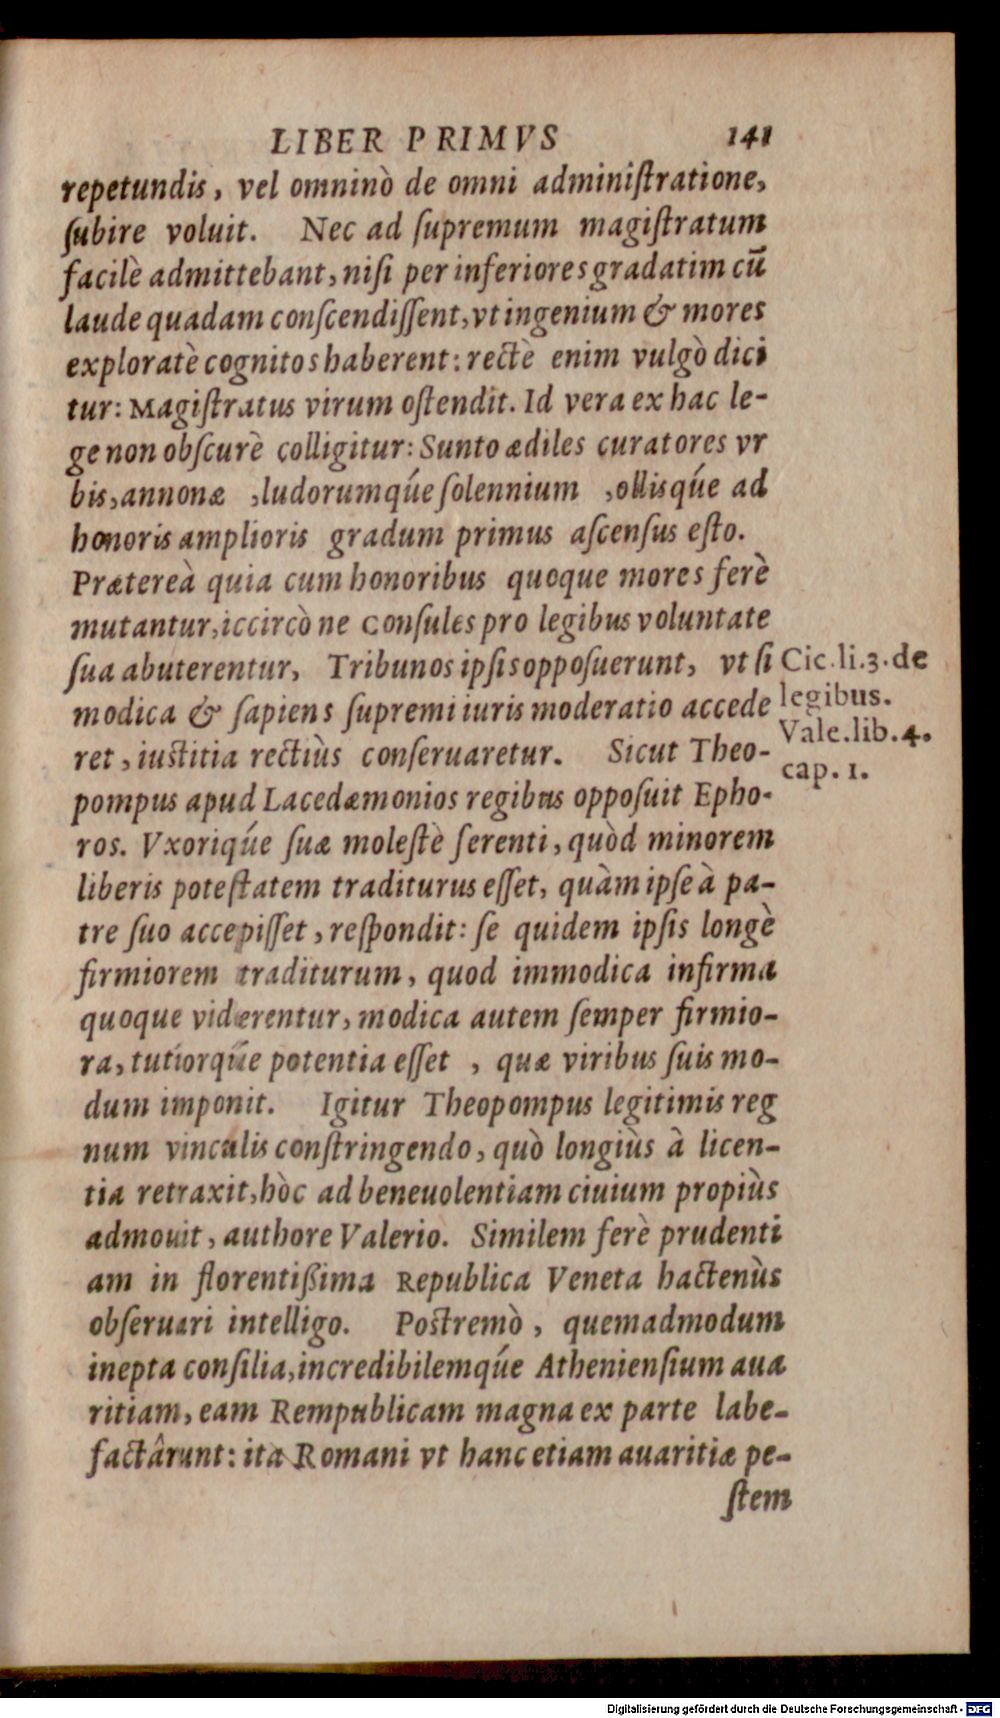 LIBER PRIMVS 141
repetundis, vel omninò de omni adminiſtratione,
ſubire voluit. Nec ad ſupremum magiſtratum
facilè admittebant, niſi per inferiores gradatim cũ
laude quadam conſcendiſſent, vt ingenium & mores
exploratè cognitos haberent: rectè enim vulgò dici
tur: Magiſtratus virum oſtendit. Id vera ex hac le-
ge non obſcurè colligitur: Sunto ædiles curatores vr
bis, annonæ ,ludorumq́ue ſolennium ,ollisq́ue ad
honoris amplioris gradum primus aſcenſus eſto.
Prætereà quia cum honoribus quoque mores ferè
mutantur, iccircò ne Conſules pro legibus voluntate
ſua abuterentur, Tribunos ipſis oppoſuerunt, vt ſi
modica & ſapiens ſupremi iuris moderatio accede
ret, iuſtitia rectiùs conſeruaretur. Sicut Theo-
pompus apud Lacedæmonios regibus oppoſuit Epho-
ros. Vxoriq́ue ſuæ moleſtè ferenti, quòd minorem
liberis poteſtatem traditurus eſſet, quàm ipſe à pa-
tre ſuo accepiſſet, reſpondit: ſe quidem ipſis longè
firmiorem traditurum, quod immodica infirma
quoque viderentur, modica autem ſemper firmio-
ra, tutiorq́ue potentia eſſet , quæ viribus ſuis mo-
dum imponit. Igitur Theopompus legitimis reg
num vinculis conſtringendo, quò longiùs à licen-
tia retraxit, hòc ad beneuolentiam ciuium propiùs
admouit, authore Valerio. Similem ferè prudenti
am in florentißima Republica Veneta hactenùs
obſeruari intelligo. Poſtremò, quemadmodum
inepta conſilia, incredibilemq́ue Athenienſium aua
ritiam, eam Rempublicam magna ex parte labe-
factârunt: ita Romani vt hanc etiam auaritiæ pe-
ſtem
Cic. li. 3. de
legibus.
Vale. lib. 4.
cap. 1.
Digitalisierung gefördert durch die Deutsche Forschungsgemeinschaft - DFG